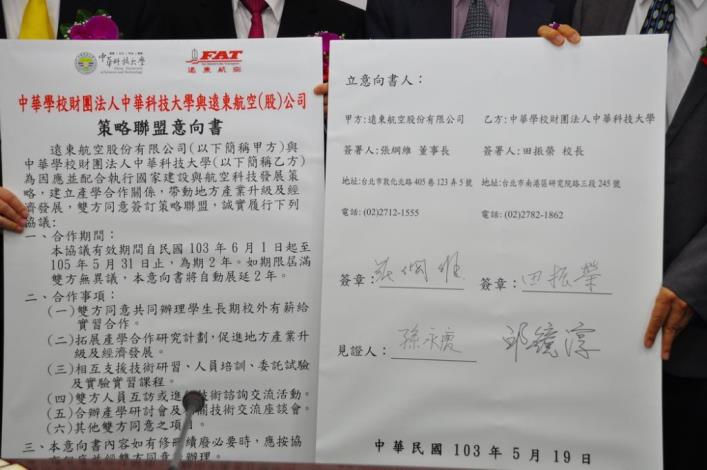 中華科技大學
China University
of Science and Technology
FAT
遠東航空
中華學校財團法人中華科技大學與遠東航空(股)公司
策略聯盟意向書
遠東航空股份有限公司(以下簡稱甲方)與
中華學校財團法人中華科技大學(以下簡稱乙方)
為因應並配合執行國家建設與航空科技發展策
略，建立產學合作關係，帶動地方產業升級及經
濟發展，雙方同意簽訂策略聯盟，誠實履行下列
協議：
一、合作期間：
本協議有效期間自民國 103 年 6 月 1 日起至
105 年 5 月 31 日止，為期 2 年。如期限屆滿
雙方無異議，本意向書將自動展延 2 年。
二、合作事項：
(一)雙方同意共同辦理學生長期校外有薪給
實習合作。
(二)拓展產學合作研究計劃，促進地方產業升
級及經濟發展。
(三)相互支援技術研習、人員培訓、委託試驗
及實驗實習課程。
(四)雙方人員互訪或進 技術諮詢交流活動。
(五)合辦產學研討會及 關技術交流座談會。
(六)其他雙方同意之項目。
三、本意向書內容如有修 續廢必要時，應按協
經雙方同意 辦理。
立意向書人：
甲方:遠東航空股份有限公司 乙方:中華學校財團法人中華科技大學
簽署人:張綱維 董事長 簽署人:田振榮 校長
地址:台北市敦化北路 405 巷 123 弄 5 號 地址:台北市南港區研究院路三段 245 號
電話: (02)2712-1555 電話: (02)2782-1862
簽章：張綱維 簽章：田振榮
見證人：孫永慶 邱鏡淳
中華民國 103 年 5 月 19 日